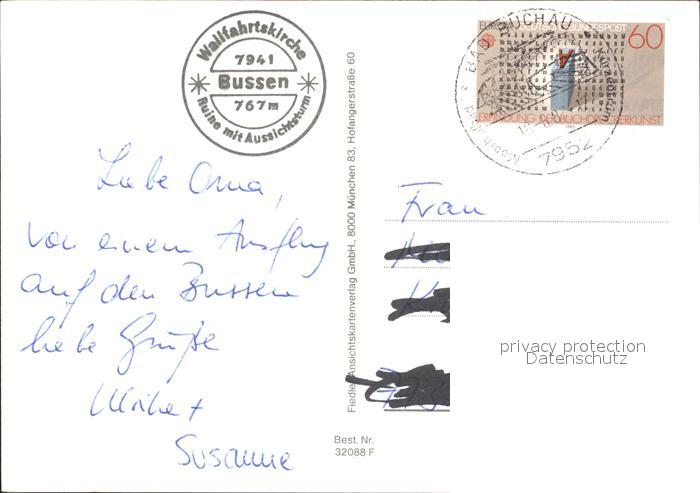 Wallfahrtskirche
7941
Bussen
767m
Ruine mit Aussichtsturm
EUROPA DEUTSCHE BUNDESPOST
60
ERFINDUNG DER BUCHDRUCKERKUNST
BAD BUCHAU
7952
Liebe Oma,
von einem Ausflug
auf den Bussen
liebe Grüße
Ulrike +
Susanne
Fiedler Ansichtskartenverlag GmbH., 8000 München 83, Hofangerstraße 60
Best. Nr.
32088 F
Frau
privacy protection
Datenschutz